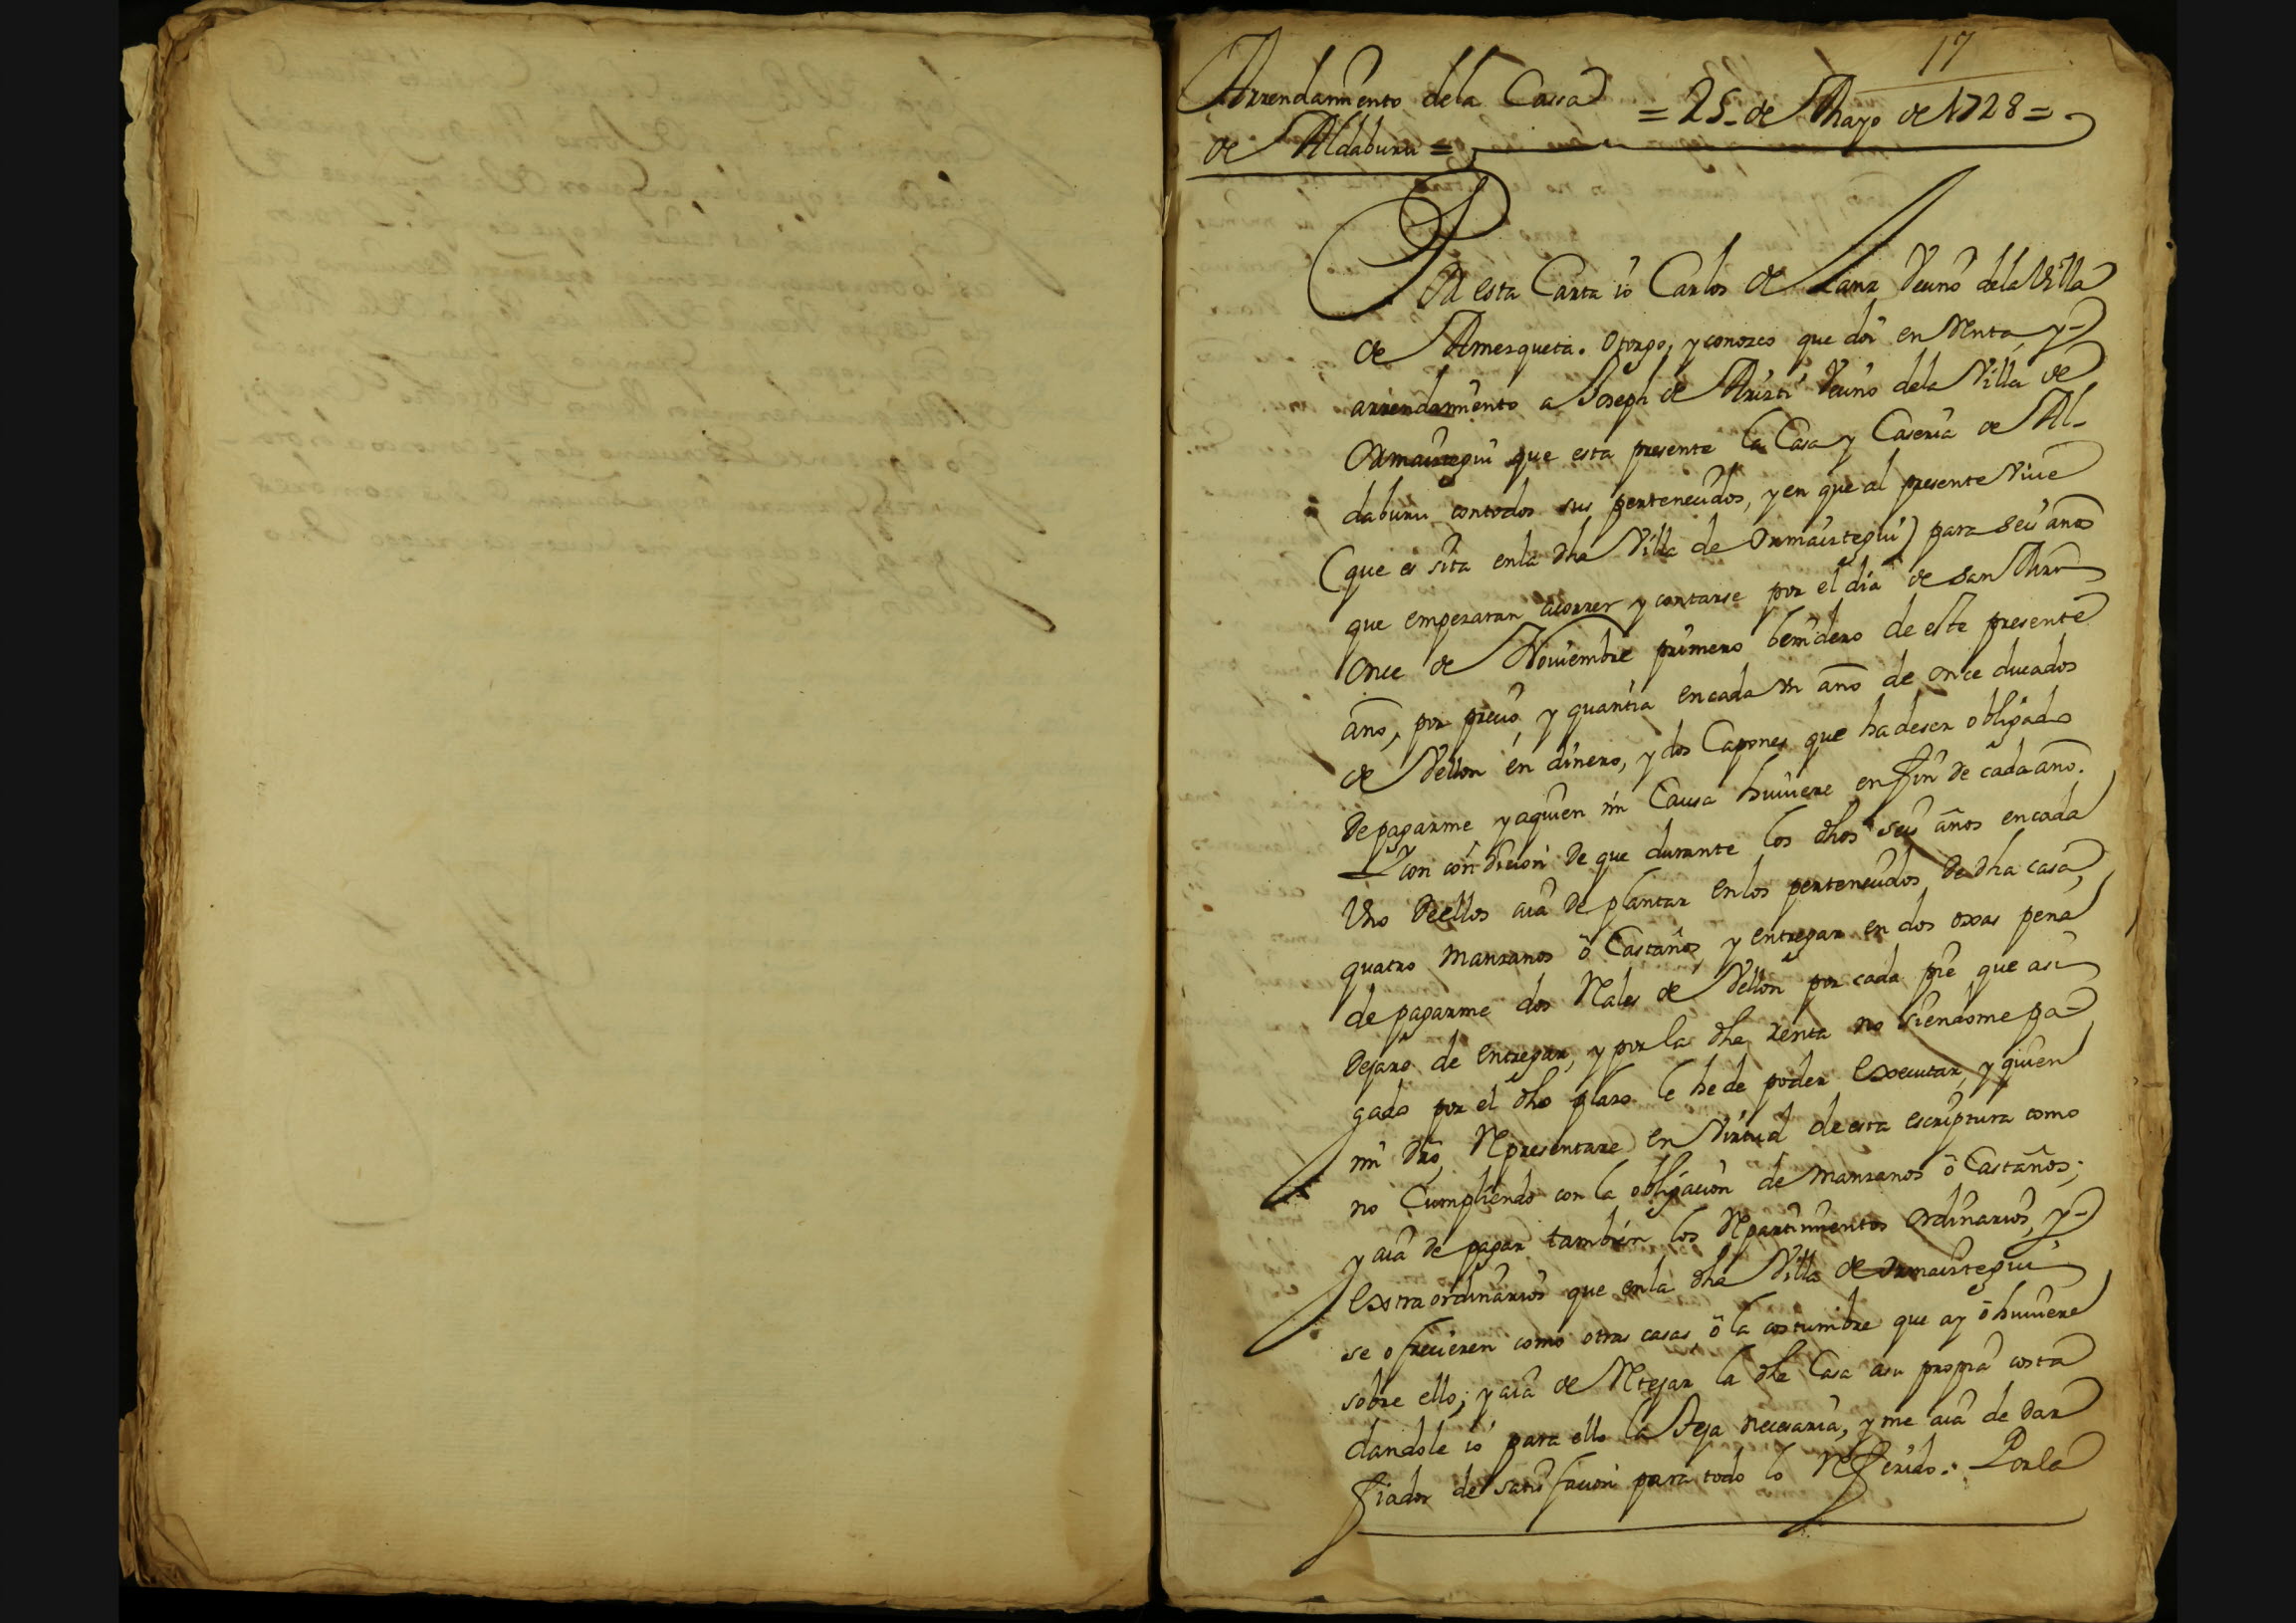 17
Arrendamiento dela Cassa
= 25 de Mayo de 1728 =
de Aldaburu =
Por esta Carta io Carlos de Lanz Vecino dela Villa
de Amezqueta. Otorgo, y conozco que doi en Renta, y
arrendamiento a Joseph de Arizti Vecino dela Villa de
Ormaiztegui que esta presente la Casa y Caseria de Al-
daburu con todos sus pertenecidos, y en que al presente Vive
(que es sita en la dha Villa de Ormaiztegui) para seis años
que empezaran acorrer y contarse por el dia de San Mrn
Once de Noviembre primero benidero de este presente
año, por precio, y quantia en cada un año de once ducados
de Vellon en dinero, y dos Capones que ha deser obligado
De pagarme y aquien mi Causa huviere en fin de cada año.
Y con condicion De que durante los dhos seis años en cada
Uno De ellos aia De plantar en los pertenecidos De dha casa,
quatro Manzanos ô Castaños, y entregar en dos oxas pena
de pagarme dos Rales de Vellon por cada pie que asi
Dejare de entregar, y por la dha renta no siendome pa-
gado por el dho plazo le he de poder executar, y quien
mi dro Representare en Virtud de esta escriptura como
no Cumpliendo con la obligacion de Manzanos ô Castaños;
y aia de pagar tambien los Repartimientos ordinarios, y
extraordinarios que en la dha Villa de Ormaiztegui
se ofrecieren como otras casas, ô la costumbre que ay ô huviere
sobre ello; y aia de Retejar la dha Casa asu propria costa
dandole io para ello la Teja necesaria, y me aia de dar
fiador de satisfacion para todo lo Referido. Por la